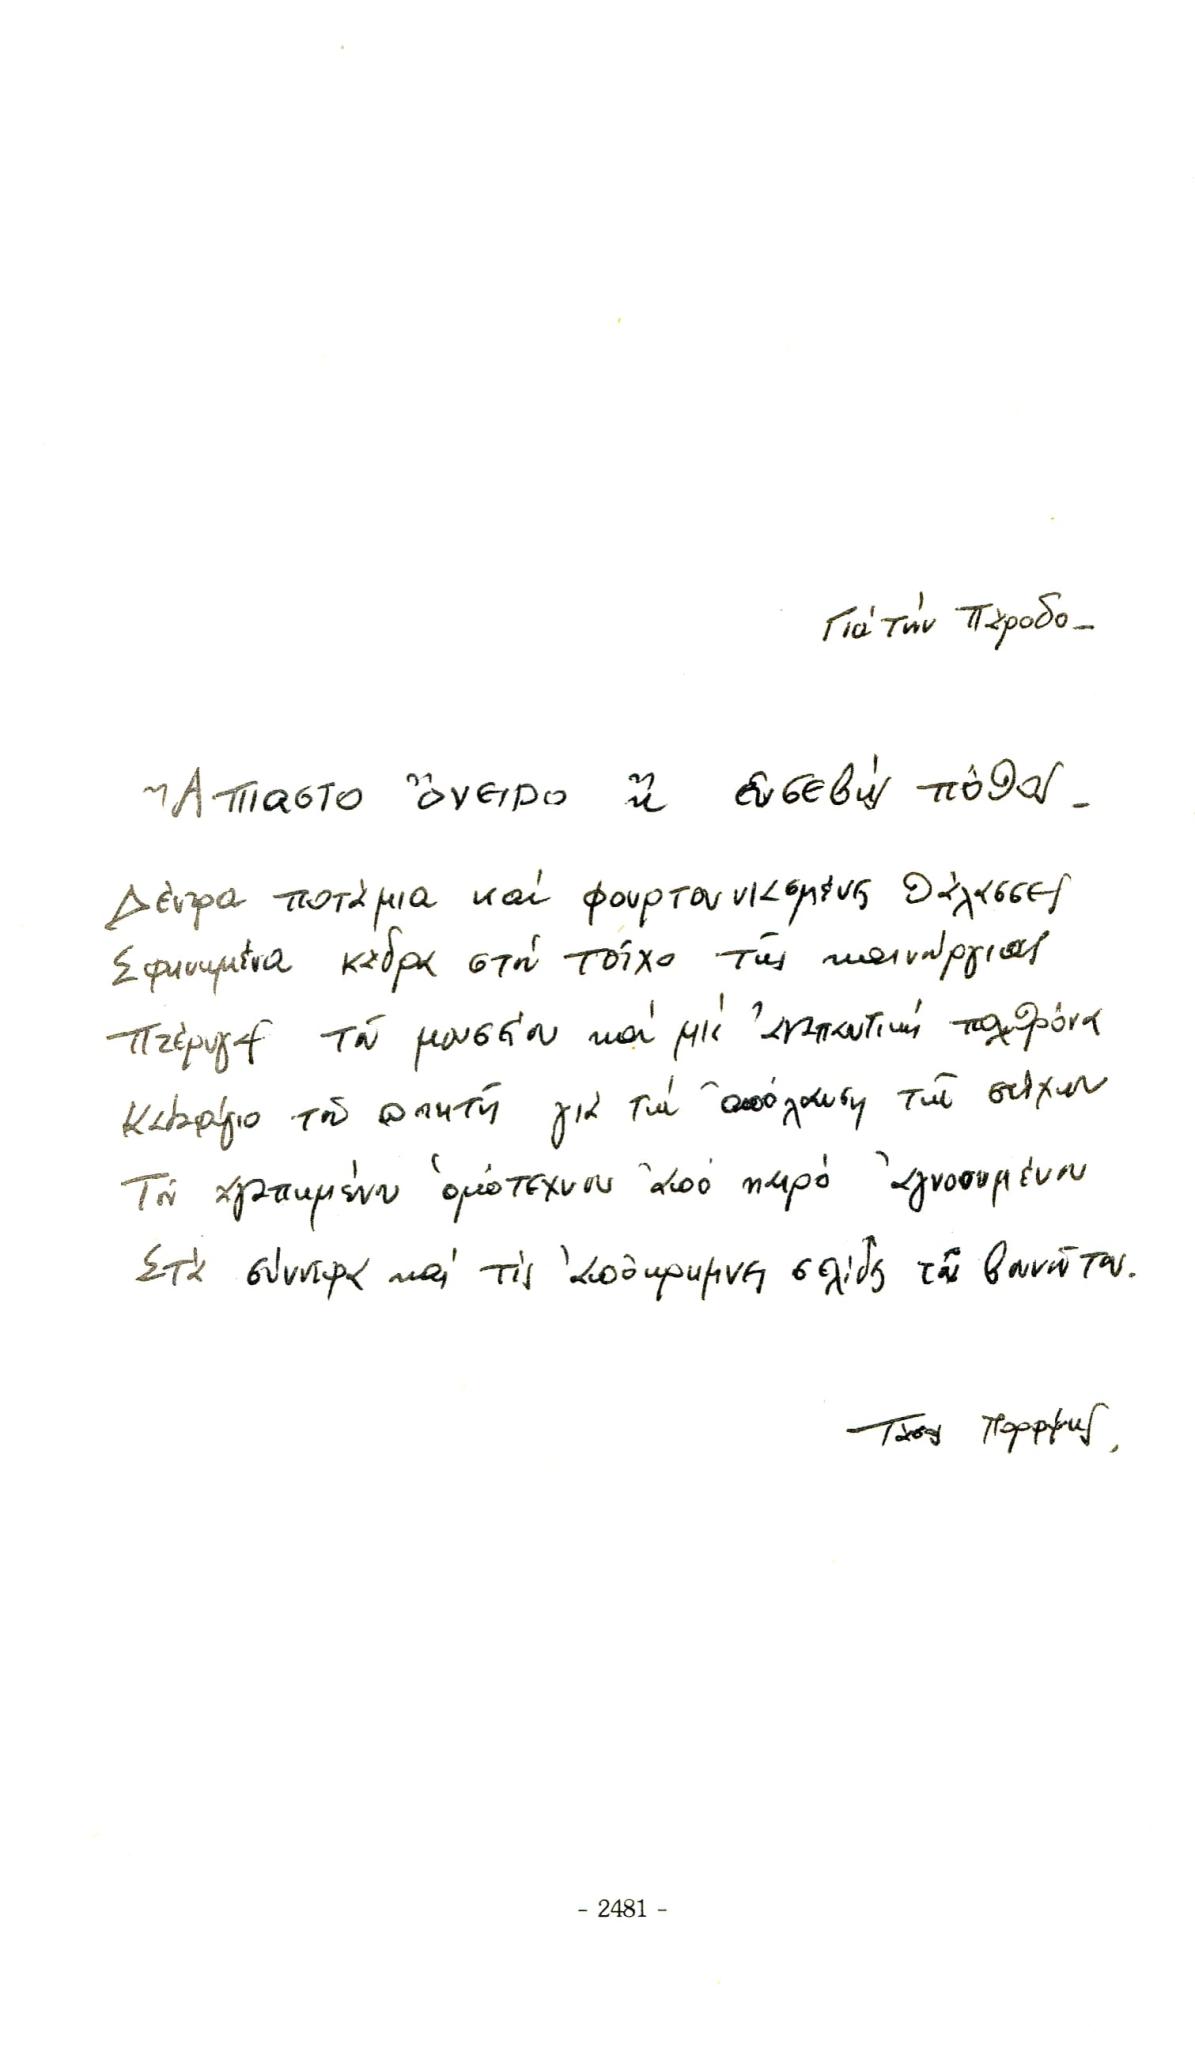 Γιά τήν Πάροδο _
Ἄπιαστο ὄνειρο ἤ εὐσεβής πόθος _
Δέντρα ποτάμια καί φουρτουνιασμένες θάλασσες
Σφηνωμένα κάδρα στόν τοῖχο τῆς καινούργιας
Πτέρυγας τοῦ μουσείου καί μιά ἀναπαυτική πολυθρόνα
τοῦ ποιητῆ γιά τήν ἀπόλαυση τῶν στίχων
Τοῦ ἀγαπημένου ὁμότεχνου ἀπό καιρό ἀγνοουμένου
Στά σύννεφα καί τίς ἀπόκρημνες σελίδες τοῦ βουνοῦ του.
Τάσος Πορφύρης
- 2481 -